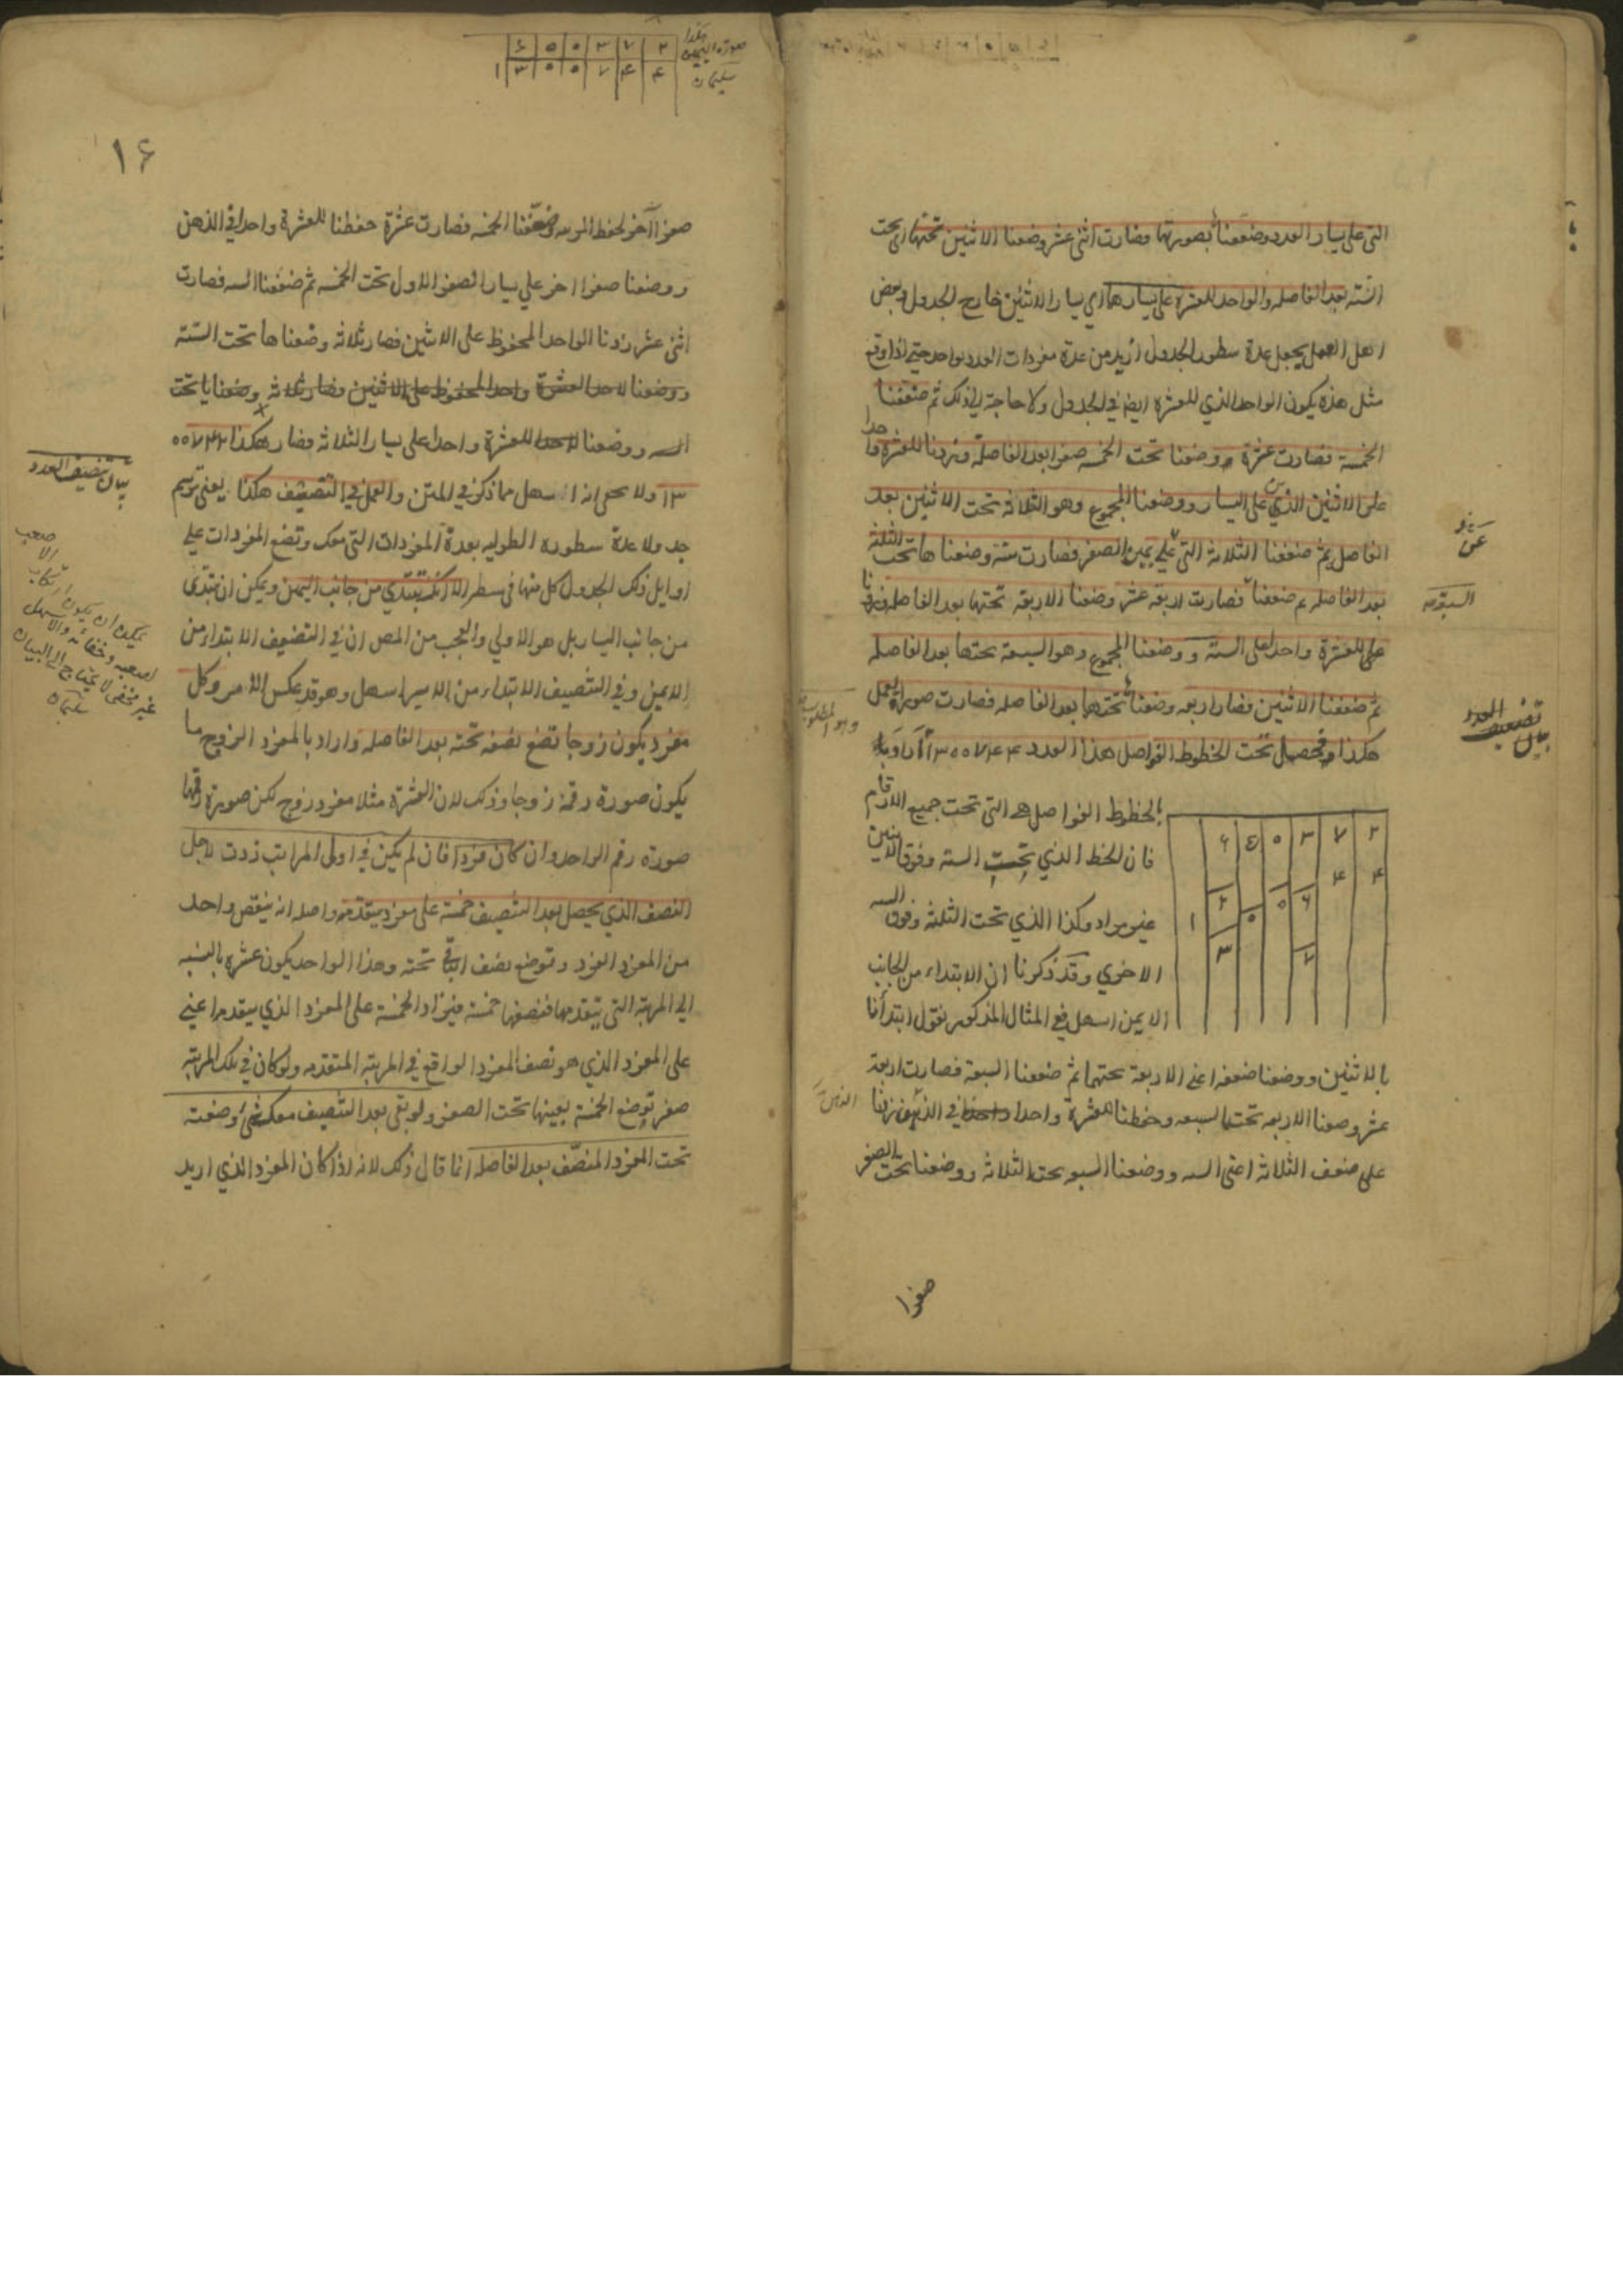 التى على يسار العدد وضعفنا بصورتها فصارت اثنى عشر وضعنا الاثنين تحتها اى تحت
الستة بعد الفاصله والواحد للعشرة على يسارها اي يسار الاثنين خارج الجدول وبعض
اهل العمل يجعل عدة سطور الجدول ازيد من عدة مفردات العدد بواحد حتى اذا وقع
مثل هذه يكون الواحد الذي للعشرة ايضا في الجدول ولا حاجة الى ذلك ثم ضعفنا
الخمسة فصارت عشرة ووضعنا تحت الخمسة صفرا بعد الفاصلة وزدنا للعشرة واحدا
على الاثنين الذي على اليسار ووضعنا المجموع وهو الثلاثة تحت الاثنين بعد
الفاصل ثم ضعفنا الثلاثة التى على يمين الصفر فصارت ستة وضعناها تحت الثلثة
بعد الفاصله ثم ضعفنا فصارت اربعة عشر وضعنا الاربعة تحتها بعد الفاصله وزدنا
للعشرة واحدا على الستة ووضعنا المجموع وهو السبعة تحتها بعد الفاصله
ثم ضعفنا الاثنين فصار اربعه وضعناها تحتها بعد الفاصله فصارت صورة العمل
هكذا وتحصيل تحت الخطوط الفواصل هذا العدد ١٣٠٠٧٤٤ اراد
بالخطوط الفواصل هى التى تحت جميع الارقام
فان الخط الذي تحت الستة وفوق الاثنين
غير مراد وكذا الذي تحت الثلثة وفوق الستة
الاخرى وقد ذكرنا ان الابتداء من الجانب
الايمن اسهل ففي المثال المذكور نقول ابتدأنا
٦ ٥ ٠ ٣ ٧ ٢
٢ ٠ ٦ ٤ ٤
١ ٣ ٠ ٧
بالاثنين ووضعنا ضعفه اعنى الاربعة تحتها ثم ضعفنا السبعة فصارت اربعة
عشر وضعنا الاربعه تحت السبعه وحفظنا للعشرة واحدا في الذهن زدنا
على ضعف الثلاثة اعنى السته ووضعنا السبعه تحت الثلاثة ووضعنا تحت الصفر
صفرا
السبعة
بيان تضعيف العدد
وهو المطلوب
صورة اليمين هكذا
٦ ٥ ٠ ٣ ٧ ٢
١ ٣ ٠ ٠ ٧ ٤ ٤
سليمان
١۶
صفرا آخر لحفظ المرتبه وضعفنا الخمسه فصارت عشرة حفظنا للعشرة واحدا في الذهن
ووضعنا صفرا اخر على يسار الصفر الاول تحت الخمسه ثم ضعفنا السته فصارت
اثنى عشر زدنا الواحد المحفوظ على الاثنين فصار ثلاثة وضعناها تحت الستة
ووضعنا لاحد العشرة واحد المحفوظ على الاثنين فصار ثلاثه وضعناها تحت
السته ووضعنا للعشرة واحدا على يسار الثلاثة فصار هكذا ٠٠٧٤٤
١٣ ولا يخفى انه اسهل مما ذكر في المتن والعمل في التنصيف هكذا يعنى ترسم
جدولا عدة سطوره الطوليه بعدة المفردات التى معك وتضع المفردات على
اوايل ذلك الجدول كل منها فى سطر الا انك تبتدي من جانب اليمين ويمكن ان تبتدى
من جانب اليسار بل هو الاولى والتعجب من المص ان في التضعيف الابتداء من
الايمن وفي التنصيف الابتداء من الايسر اسهل وهو قد عكس الامر وكل
مفرد يكون زوجا تضع نصفه تحته بعد الفاصله واراد بالمفرد الزوج ما
يكون صورة رقمه زوجا وذلك لان العشرة مثلا مفرد زوج لكن صورة رقمها
صورة رقم الواحد وان كان فردا فان لم يكن في اولى المراتب زدت لاجل
النصف الذي يحصل بعد التنصيف خمسة على مفرد يتقدمه واصله انه ينقص واحد
من المفرد الفرد وتوضع نصف الباقى تحته وهذا الواحد يكون عشرة بالنسبه
الى المرتبة التى يتقدمها فنصفها خمسة فيزاد الخمسة على المفرد الذي يتقدمه اعنى
على المفرد الذي هو نصف المفرد الواقع في المرتبة المتقدمه ولو كان في تلك المرتبة
صفر توضع الخمسة بعينها تحت الصفر ولو بقى بعد التنصيف معك شئ وضعته
تحت المفرد المنصف بعد الفاصله انما قال ذلك لانه اذا كان المفرد الذي اريد
بيان تنصيف العدد
يمكن ان يكون ارتكاب الاصعب
لصعبيه وخفائه والاسهل
غير مخفى لا يحتاج الى البيان
سليمان